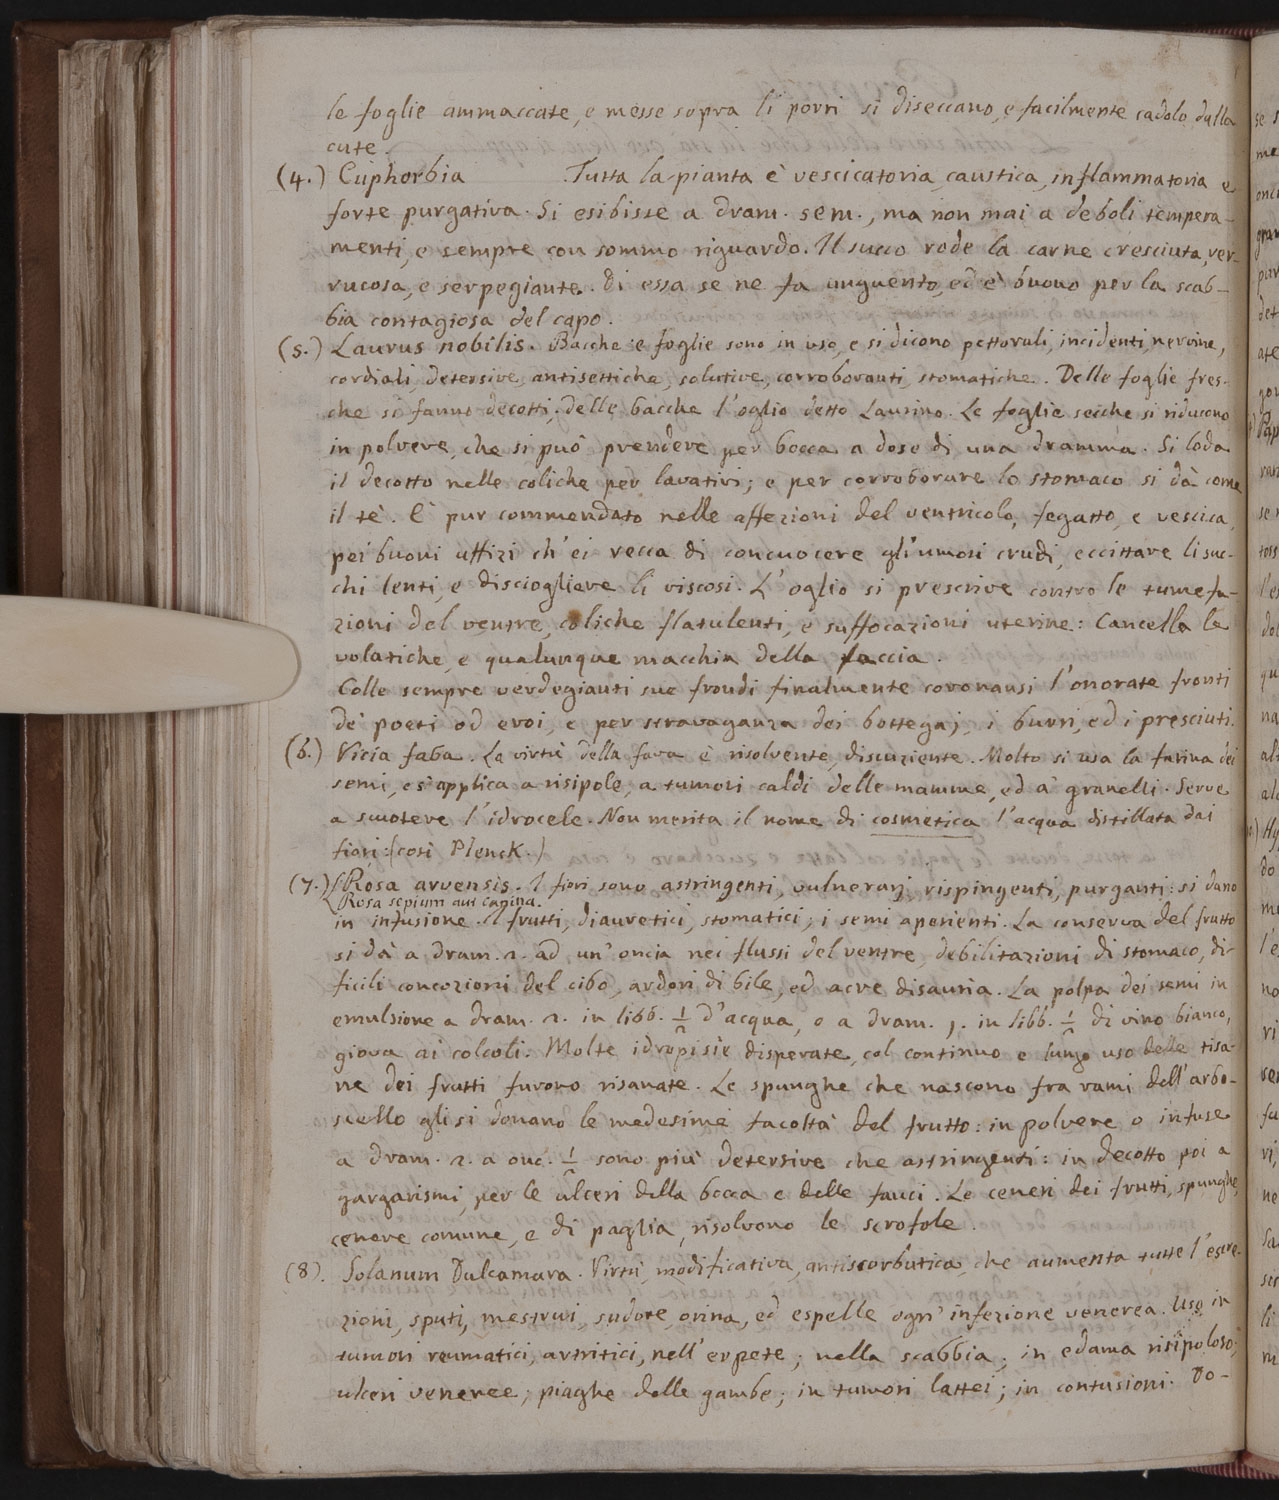 le foglie ammaccate, e messe sopra li porri si diseccano, e facilmente cadolo dalla
cute.
(4.) Euphorbia Tutta la pianta è vescicatoria, caustica, inflammatoria e
forte purgativa. Si esibisse a dram. sem., ma non mai a deboli tempera-
menti, e sempre con sommo riguardo. Il succo rode la carne cresciuta, ver-
rucosa, e serpegiante. Di essa se ne fa unguento, ed è buono per la scab-
bia contagiosa del capo.
(5.) Laurus nobilis. Bacche e foglie sono in uso, e si dicono pettorali, incidenti, nervine,
cordiali, detersive, antisettiche, solutive, corroboranti, stomatiche. Delle foglie fres-
che si fanno decotti; delle bacche l'oglio detto Laurino. Le foglie secche si riducono
in polvere, che si può prendere per bocca a dose di una dramma. Si loda
il decotto nelle coliche per lavativi; e per corroborare lo stomaco si dà come
il tè. E' pur commendato nelle affezioni del ventricolo, fegatto, e vescica,
pei buoni uffizi ch'ei recca di concuocere gl'umori crudi, eccittare li suc-
chi lenti, e disciogliere li viscosi. L'oglio si prescrive contro le tumefa-
zioni del ventre, coliche flatulenti, e suffocazioni uterine: Cancella le
volatiche, e qualunque macchia della faccia.
Colle sempre verdegianti sue frondi finalmente coronansi l'onorate fronti
de' poeti od eroi, e per stravaganza dei bottegaj, i burri, ed i presciuti.
(6.) Vicia faba. La virtù della fava è risolvente, discuziente. Molto si usa la farina dei
semi, e s'applica a risipole, a tumori caldi delle mamme, ed a' granelli. Serve
a scuotere l'idrocele. Non merita il nome di cosmetica l'acqua distillata dai
fiori: (così Plenck.)
(7.) Rosa arvensis. I fiori sono astringenti, vulnerarj, rispingenti, purganti: si dano
Rosa sepium aut canina.
in infusione. I frutti, diauretici, stomatici; i semi aperienti. La conserva del frutto
si dà a dram. 2. ad un'oncia nei flussi del ventre, debilitazioni di stomaco, dif-
ficili concozioni del cibo, ardori di bile, ed acre disauria. La polpa dei semi in
emulsione a dram. 2. in libb. 1/2 d'acqua, o a dram. 1. in libb. 1/2 di vino bianco,
giova ai colcoli. Molte idropisie disperate, col continuo e lungo uso delle tisa-
ne dei frutti furono risanate. Le spunghe che nascono fra rami dell'arbo-
scello gli si donano le medesime facoltà del frutto: in polvere o infuse
a dram. 2. a onc. 1/2 sono più detersive che astringenti: in decotto poi a
gargarismi, per le ulceri della bocca e delle fauci. Le ceneri dei frutti, spunghe,
cenere comune, e di paglia, risolvono le scrofole.
(8). Solanum Dulcamara. Virtù, modificativa, antiscorbutica, che aumenta tutte l'escre-
zioni, sputi, mestrui, sudore, orina, ed espelle ogn'infezione venerea. Uso in
tumori reumatici, artritici, nell'erpete; nella scabbia; in edama risipoloso;
ulceri veneree; piaghe delle gambe; in tumori lattei; in contusioni. Do-